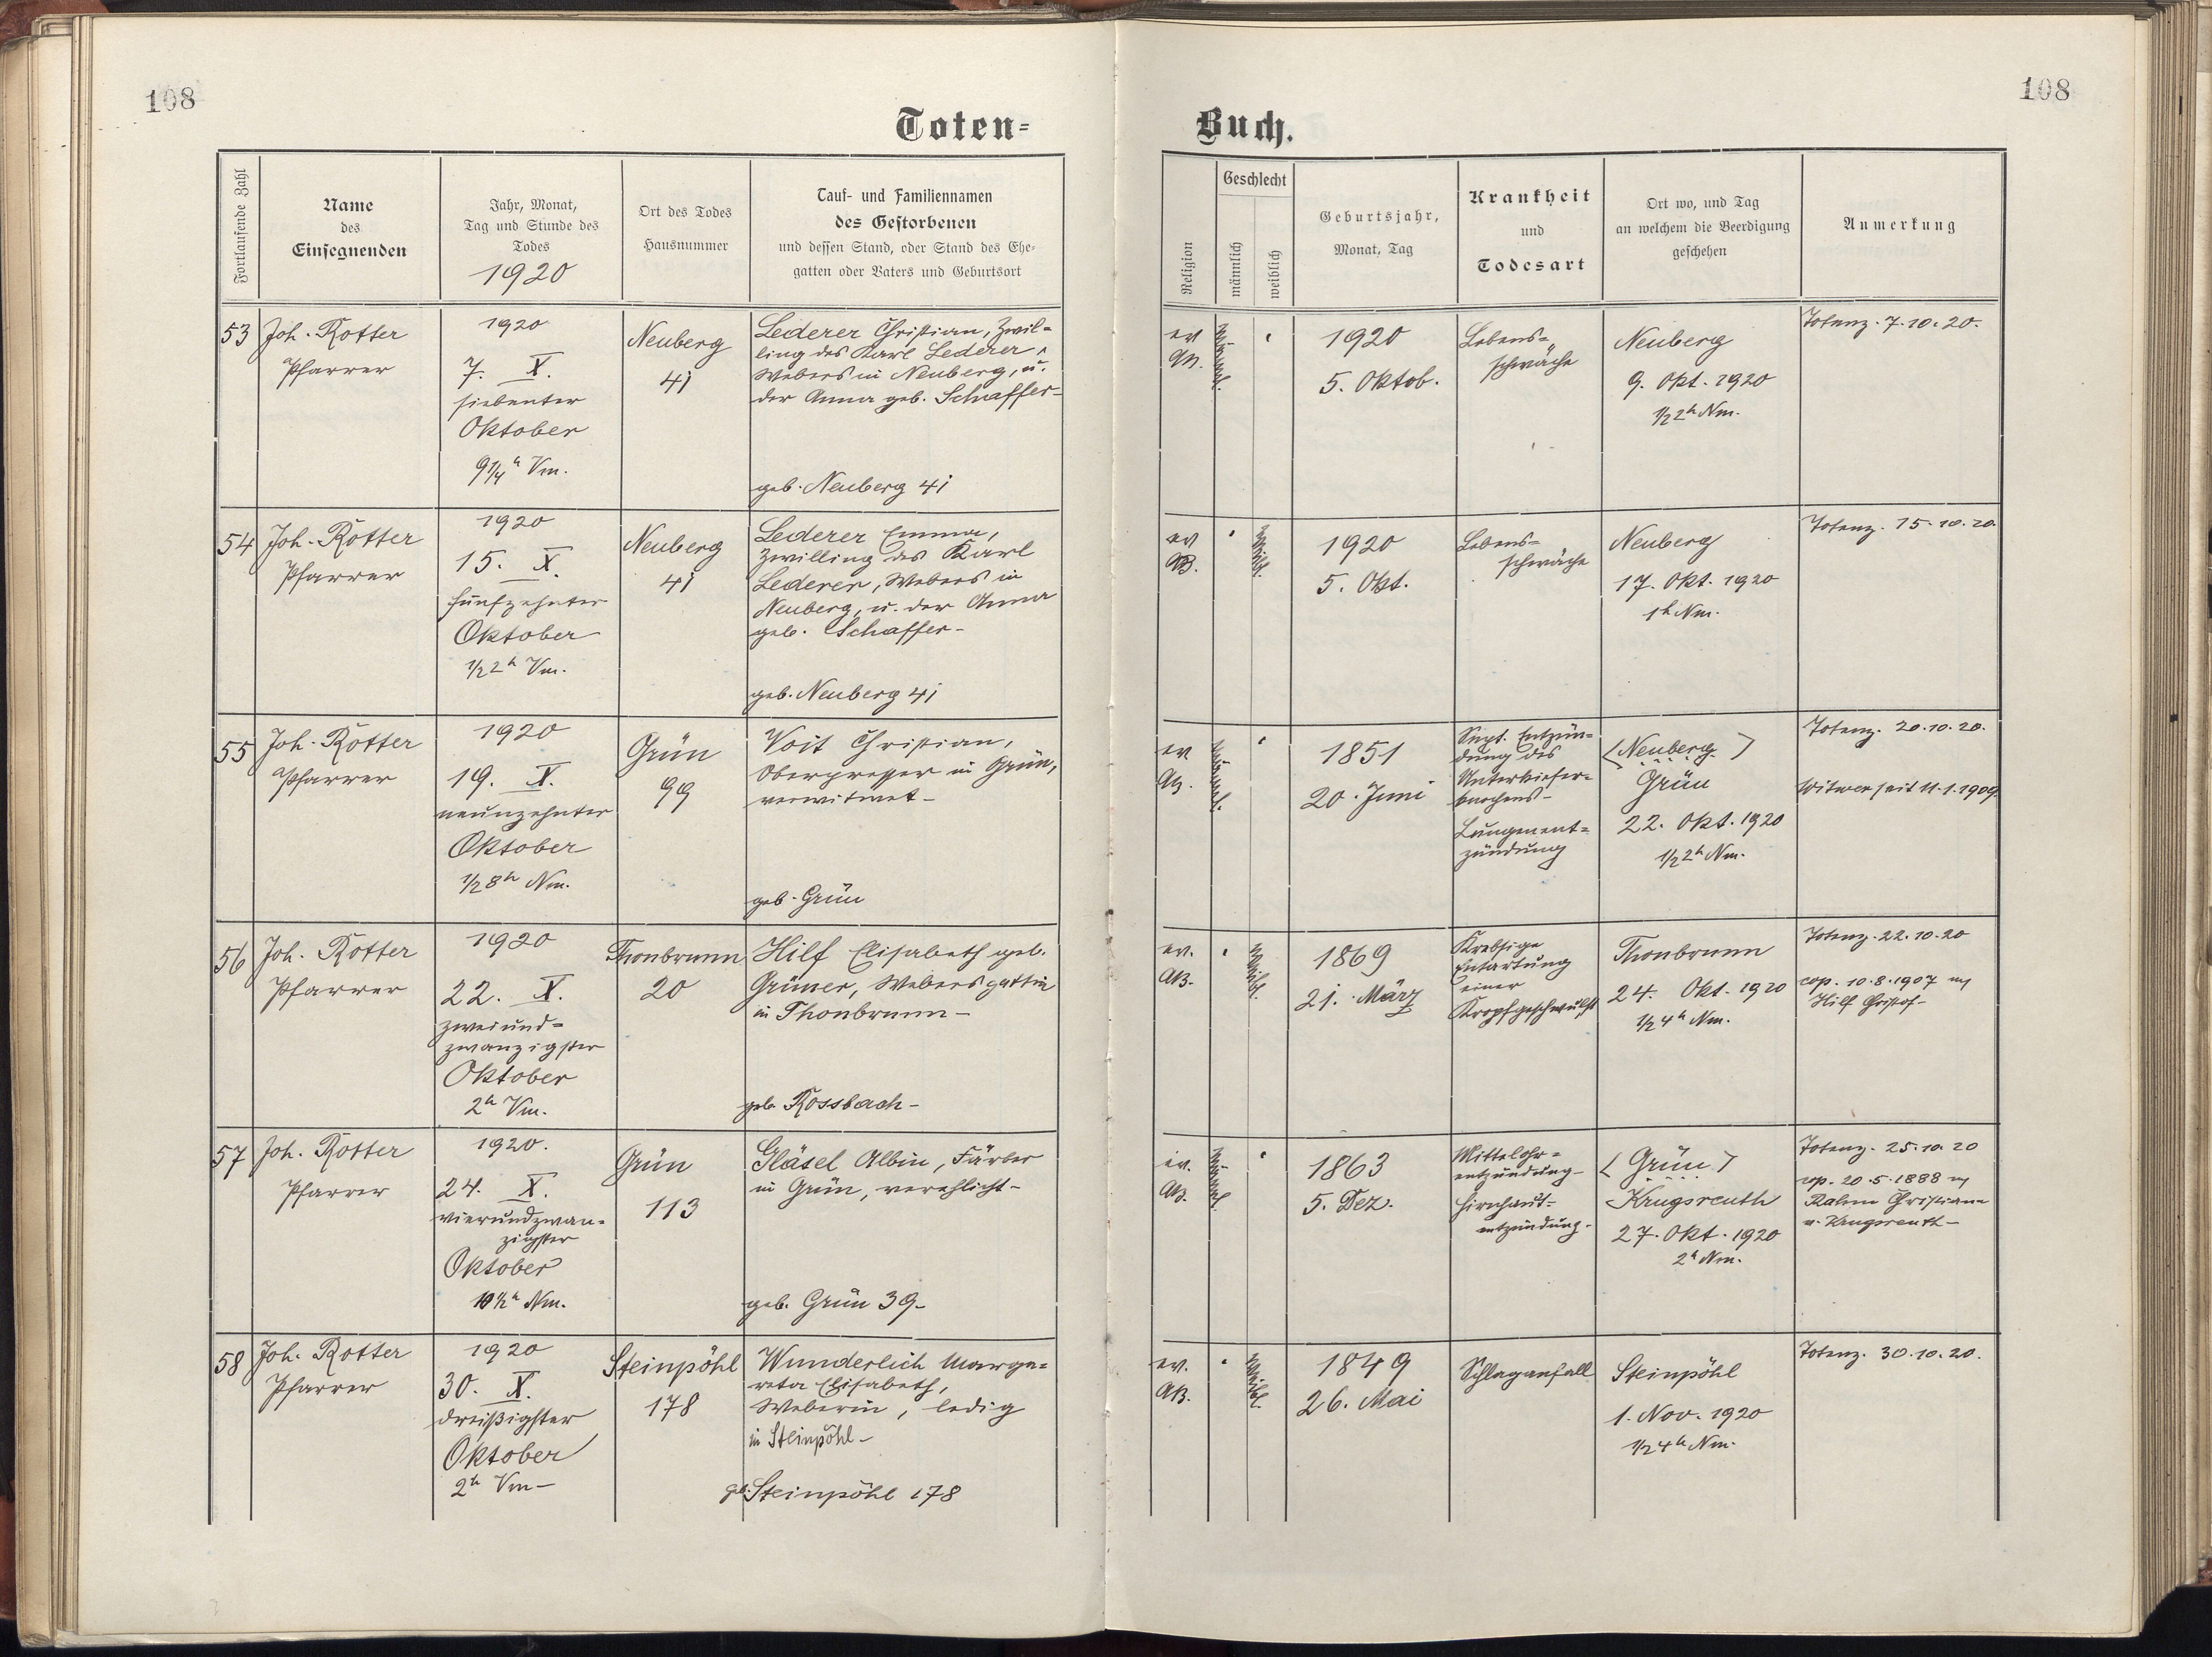 108
108
Toten=
Buch.
Fortlaufende Zahl
Name
des
Einsegnenden
Jahr, Monat,
Tag und Stunde des
Todes
1920
Ort des Todes
Hausnummer
Tauf- und Familiennamen
des Gestorbenen
und dessen Stand, oder Stand des Ehe-
gatten oder Vaters und Geburtsort
Religion
Geschlecht
männlich
weiblich
Geburtsjahr,
Monat, Tag
Krankheit
und
Todesart
Ort wo, und Tag
an welchem die Beerdigung
geschehen
Anmerkung
53
Joh. Rotter
Pfarrer
1920
7. X.
siebenter
Oktober
9 1/4 h Vm.
Neuberg
41
Lederer Christian, Zwil=
ling des Karl Lederer,
Webers in Neuberg, u.
der Anna geb. Schaffer-
geb. Neuberg 41
ev
AB.
männl.
1920
5. Oktob.
Lebens=
schwäche
Neuberg
9. Okt. 1920
1/2 2h Nm.
Totenz. 7.10.20.
54
Joh. Rotter
Pfarrer
1920
15. X.
fünfzehnter
Oktober
1/2 2h Vm.
Neuberg
41
Lederer Emma,
Zwilling des Karl
Lederer, Webers in
Neuberg, u. der Anna
geb. Schaffer-
geb. Neuberg 41
ev
AB.
weibl.
1920
5. Okt.
Lebens=
schwäche
Neuberg
17. Okt. 1920
1h Nm.
Totenz. 15.10.20.
55
Joh. Rotter
Pfarrer
1920
19. X.
neunzehnter
Oktober
1/2 8h Nm.
Grün
99
Voit Christian,
Oberpresser in Grün,
verwitwet-
geb. Grün
ev
AB.
männl.
1851
20. Juni
Sept. Entzün=
dung des
Unterkiefer=
knochens-
Lungenent=
zündung
<Neuberg>
Grün
22. Okt. 1920
1/2 2h Nm.
Totenz. 20.10.20.
Witwer seit 11.1.1909.
56
Joh. Rotter
Pfarrer
1920
22. X.
zweiund=
zwanzigster
Oktober
2h Vm.
Thonbrunn
20
Hilf Elisabeth geb.
Grüner, Webersgattin
in Thonbrunn-
geb. Rossbach-
ev.
AB.
weibl.
1869
21. März
Krebsige
Entartung
einer
Kropfgeschwulst
Thonbrunn
24. Okt. 1920
1/2 4h Nm.
Totenz. 22.10.20
cop. 10.8.1907 m
Hilf Christof-
57
Joh. Rotter
Pfarrer
1920.
24. X.
vierundzwan=
zigster
Oktober
10 1/2 h Nm.
Grün
113
Gläsel Albin, Färber
in Grün, verehlicht-
geb. Grün 39-
ev.
AB.
männl.
1863
5. Dez.
Mittelohr=
entzündung-
Hirnhaut=
entzündung-
<Grün>
Krugsreuth
27. Okt. 1920
2h Nm.
Totenz. 25.10.20
cop. 20.5.1888 m
Christiane
v. Krugsreuth-
58
Joh. Rotter
Pfarrer
1920
30. X.
dreißigster
Oktober
2h Vm-
Steinpöhl
178
Wunderlich Marga=
reta Elisabeth,
Weberin, ledig
in Steinpöhl-
geb. Steinpöhl 178
ev.
AB.
weibl.
1849
26. Mai
Schlaganfall
Steinpöhl
1. Nov. 1920
1/2 4h Nm.
Totenz. 30.10.20.